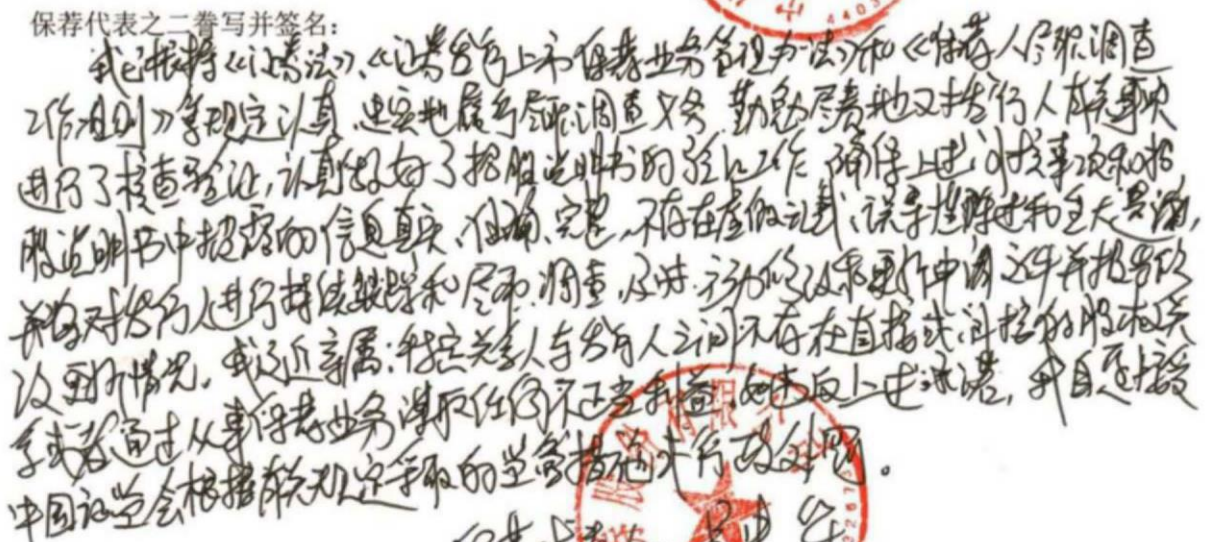 保荐代表之二誊写并签名:
我已根据《证券法》、《证券发行上市保荐业务管理办法》和《保荐人尽职调查
工作准则》等规定认真、忠实地履行尽职调查义务,勤勉尽责地对发行人有关事项
进行了核查验证,认真做好了招股说明书的验证工作,确保上述核查事项和招
股说明书中披露的信息真实、准确、完整,不存在虚假记载、误导性陈述和重大遗漏,
并将对发行人进行持续跟踪和尽职调查,及时、主动修改和更新申请文件并报告修
改更新情况。我及近亲属、特定关系人与发行人之间不存在直接或间接的股权关
系或者通过从事保荐业务谋取任何不正当利益。如违反上述承诺,我自愿接受
中国证监会根据有关规定采取的监管措施或行政处罚。
保荐代表人
股份有限
4403